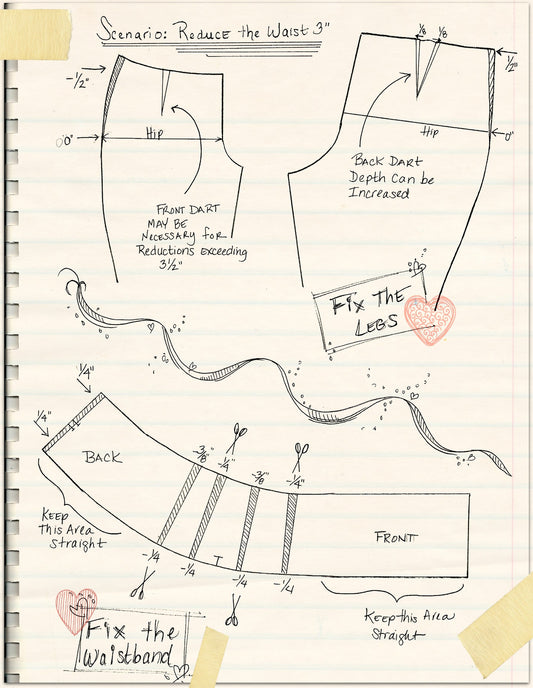 Scenario: Reduce the Waist 3"
-1/2"
0"
Hip
Front Dart
may be
Necessary for
Reductions exceeding
3 1/2"
1/8
1/8
1/2"
Hip
0"
Back Dart
Depth Can be
Increased
Fix The
Legs
1/4"
1/4"
Back
Keep
This Area
Straight
-3/8"
-1/4"
-3/8"
-1/4"
-1/4
-1/4
-1/4
-1/4
Front
Keep this Area
Straight
Fix the
Waistband